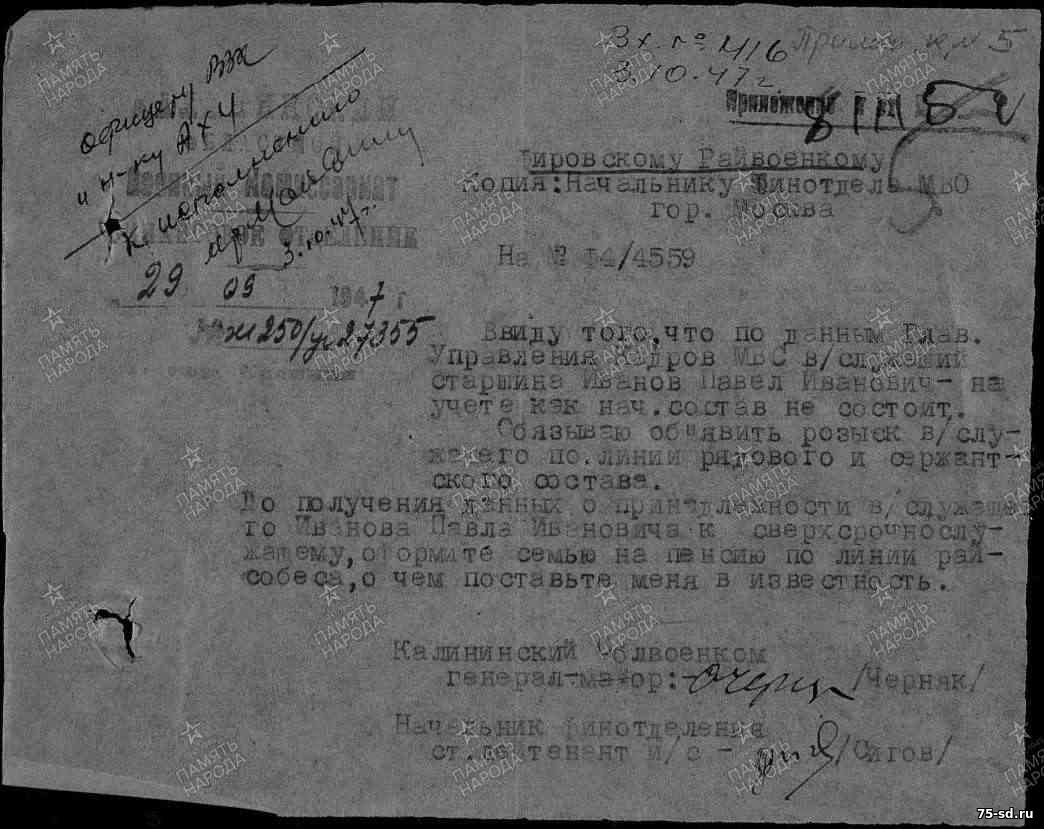 Вх. № 416
3.10.47 г.
Приложение
офицеру ВВК
и н-ку АХЧ
к исполнению
3.10.47 г.
Военный Комиссариат
29 09 1947 г
№ 250/ 27355
Кировскому Райвоенкому
Копия: Начальнику Финотдела МВО
гор. Москва
На № Ф4/4559
Ввиду того, что по данным Глав.
Управления Кадров МВС в/служащий
старшина Иванов Павел Иванович- на
учете как нач.состав не состоит.
Обязываю об"явить розыск в/слу-
жащего по.линии рядового и сержант-
ского состава.
До получения данных о принадлежности в/служаще
го Иванова Павла Ивановича к сверхсрочнослу-
жащему, оформите семью на пенсию по линии рай-
собеса, о чем поставьте меня в известность.
Калининский Облвоенком
генерал-майор:- /Черняк/
Начальник финотделения
ст.лейтенант и/с - /Сигов/
ПАМЯТЬ НАРОДА
75-sd.ru